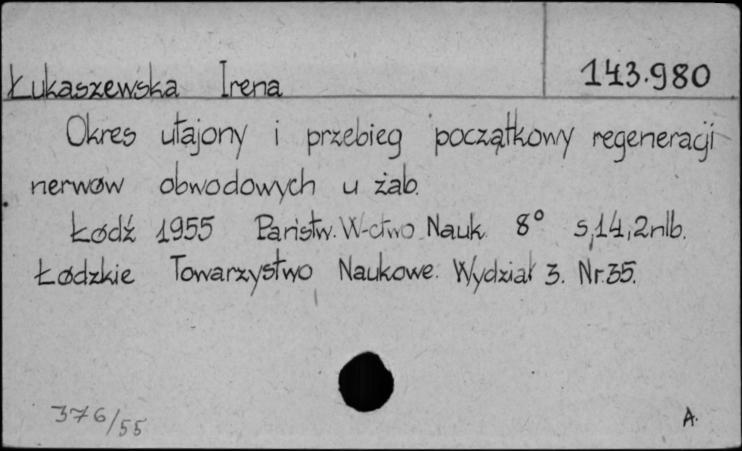 Łukaszewska Irena 143.980
Okres utajony i przebieg początkowy regeneracji
nerwów obwodowych u żab.
Łódź 1955 Państw. W-ctwo Nauk. 8° s,14,2nlb.
Łódzkie Towarzystwo Naukowe. Wydział 3. Nr.35.
376/55 A.